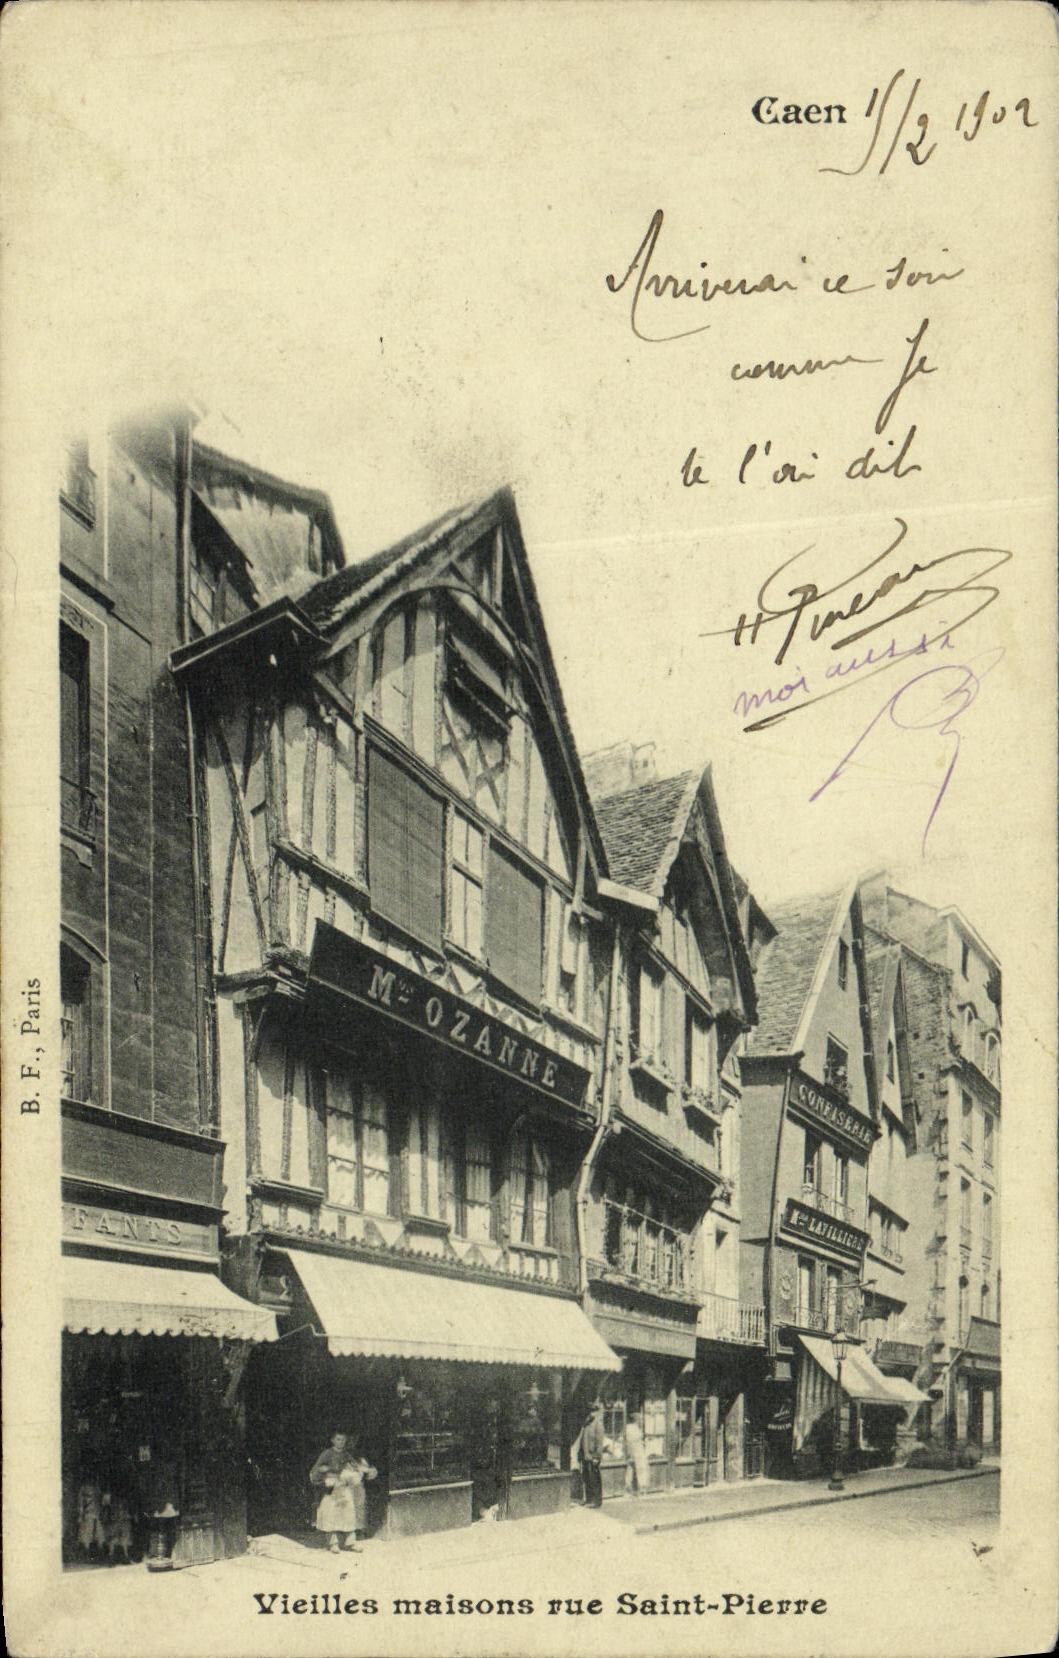 Caen 15/2 1902
Arriverai ce soir
comme Je
te l'ai dit
moi aussi
Mon OZANNE
CONFISERIE
Mon LAVILLIERE
FANTS
B. F., Paris
Vieilles maisons rue Saint-Pierre